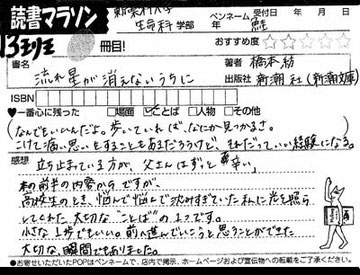 読書マラソン
生命科 学部
ペンネーム
受付日 年 月 日
冊目!
おすすめ度 ☆☆☆☆☆
書名
流れ星が消えないうちに
著者 橋本紡
出版社 新潮社(新潮文庫)
ISBN
♥一番心に残った □場面 ことば □人物 □その他
(なんでもいいんだよ。歩いていれば、なにか見つかるさ。
こけて痛い思いをすることもあるだろうけど、それだっていい経験になる。
立ち止まっている方が、父さんはずっと辛い。
感想
本の前半の内容からですが、
高校生のとき、悩んで悩んで沈みすぎていた私に光を照ら
してくれた、大切な"ことば"の1つです。
小さな1歩でもいい。前へ進んでいこうと思うことができた
大切な、瞬間でもありました。
●お寄せいただいたPOPはペンネームで、店内で掲示、ホームページおよび宣伝物への転載をご了承ください。